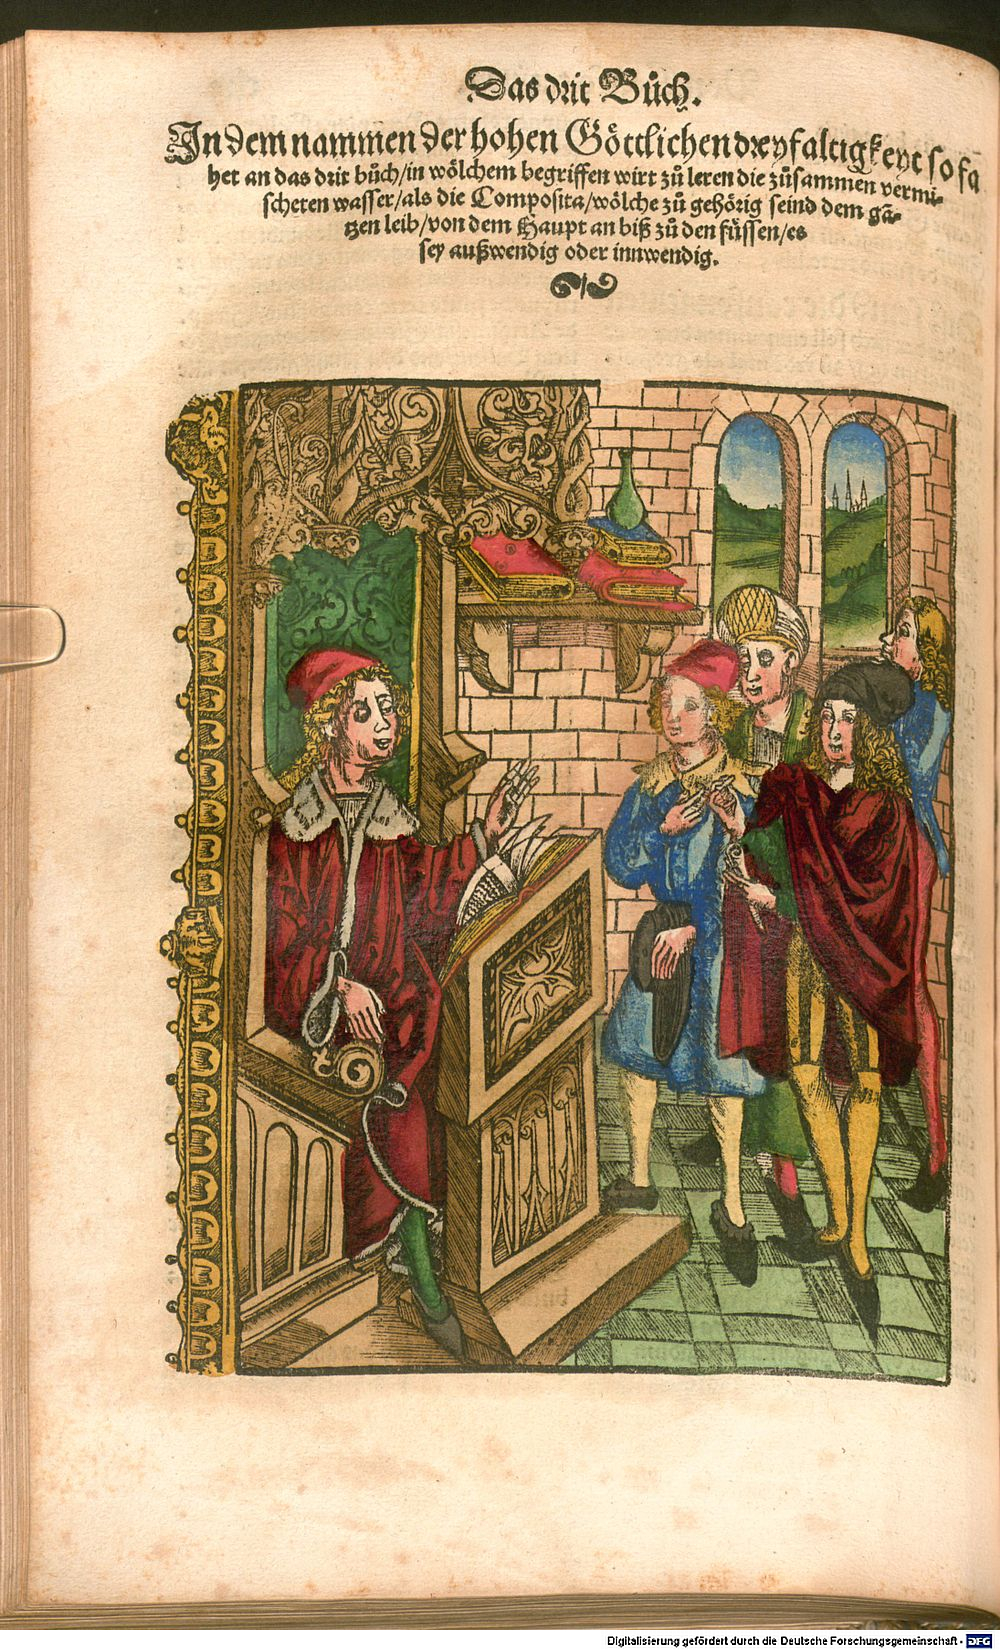 Das drit Bůch.
In dem nammen der hohen Göttlichen dreyfaltigkeyt so fa
het an das drit bůch/in wölchem begriffen wirt zů leren die zůsammen vermi-
scheten wasser/als die Composita/wölche zů gehörig seind dem gā-
tzen leib/von dem Haupt an biß zů den füssen/es
sey außwendig oder innwendig.
Digitalisierung gefördert durch die Deutsche Forschungsgemeinschaft - DFG